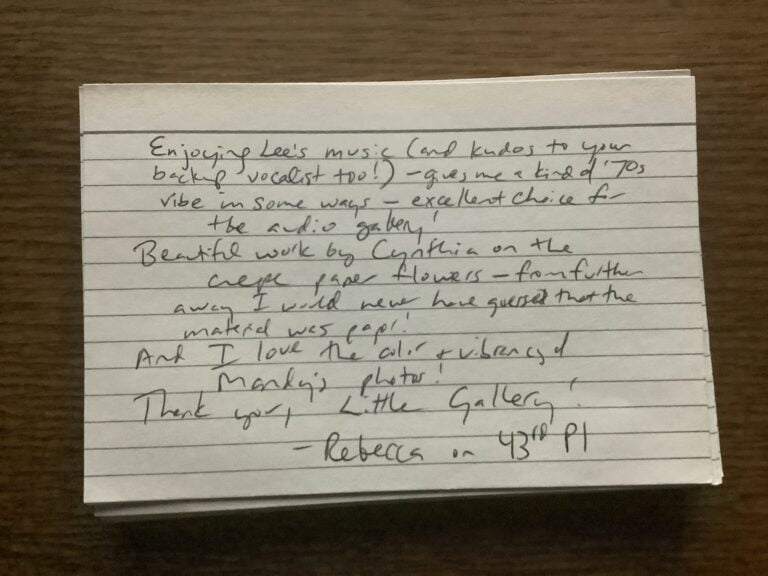 Enjoying Lee's music (and kudos to your
backup vocalist too!) – gives me a kind of '70s
vibe in some ways – excellent choice for
the audio gallery!
Beautiful work by Cynthia on the
crepe paper flowers – from further
away I would never have guessed that the
material was paper!
And I love the color + vibrancy of
Mandy's photos!
Thank you, Little Gallery!
– Rebecca on 43rd Pl